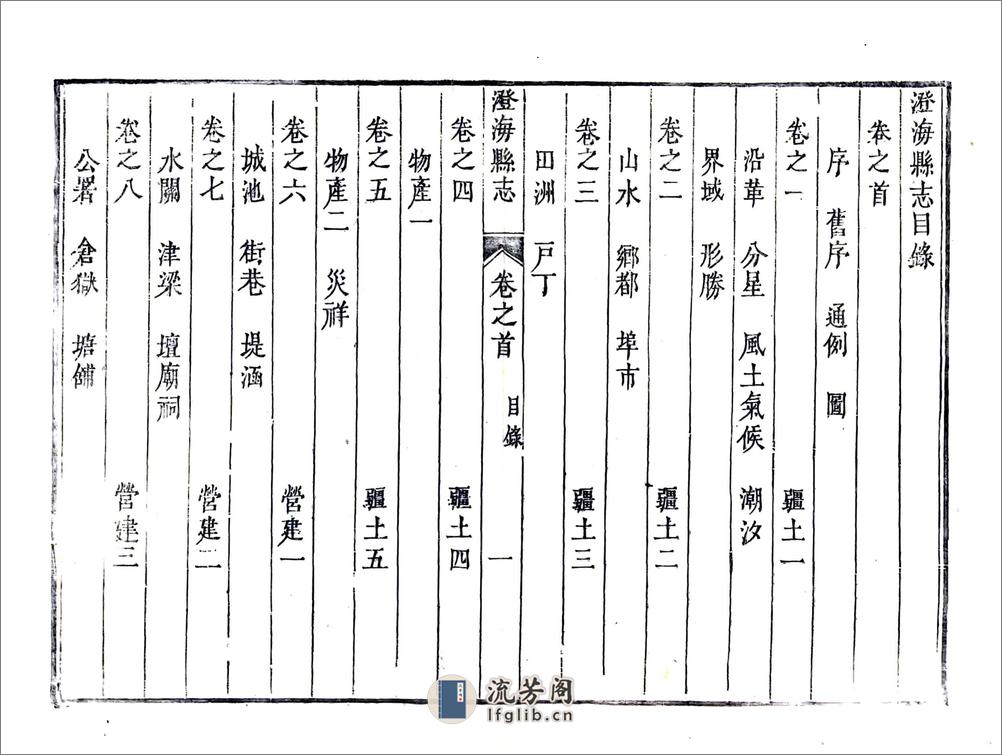 澄海縣志目錄
卷之首
序 舊序 通例 圖
卷之一 疆土一
沿革 分星 風土氣候 潮汐
界域 形勝
卷之二 疆土二
山水 鄉都 埠市
卷之三 疆土三
田洲 戸丁
澄海縣志 卷之首 目錄 一
卷之四 疆土四
物產一
卷之五 疆土五
物產二 災祥
卷之六 營建一
城池 街巷 堤涵
卷之七 營建二
水關 津梁 壇廟祠
卷之八 營建三
公署 倉獄 塘舖
流芳阁
lfglib.cn